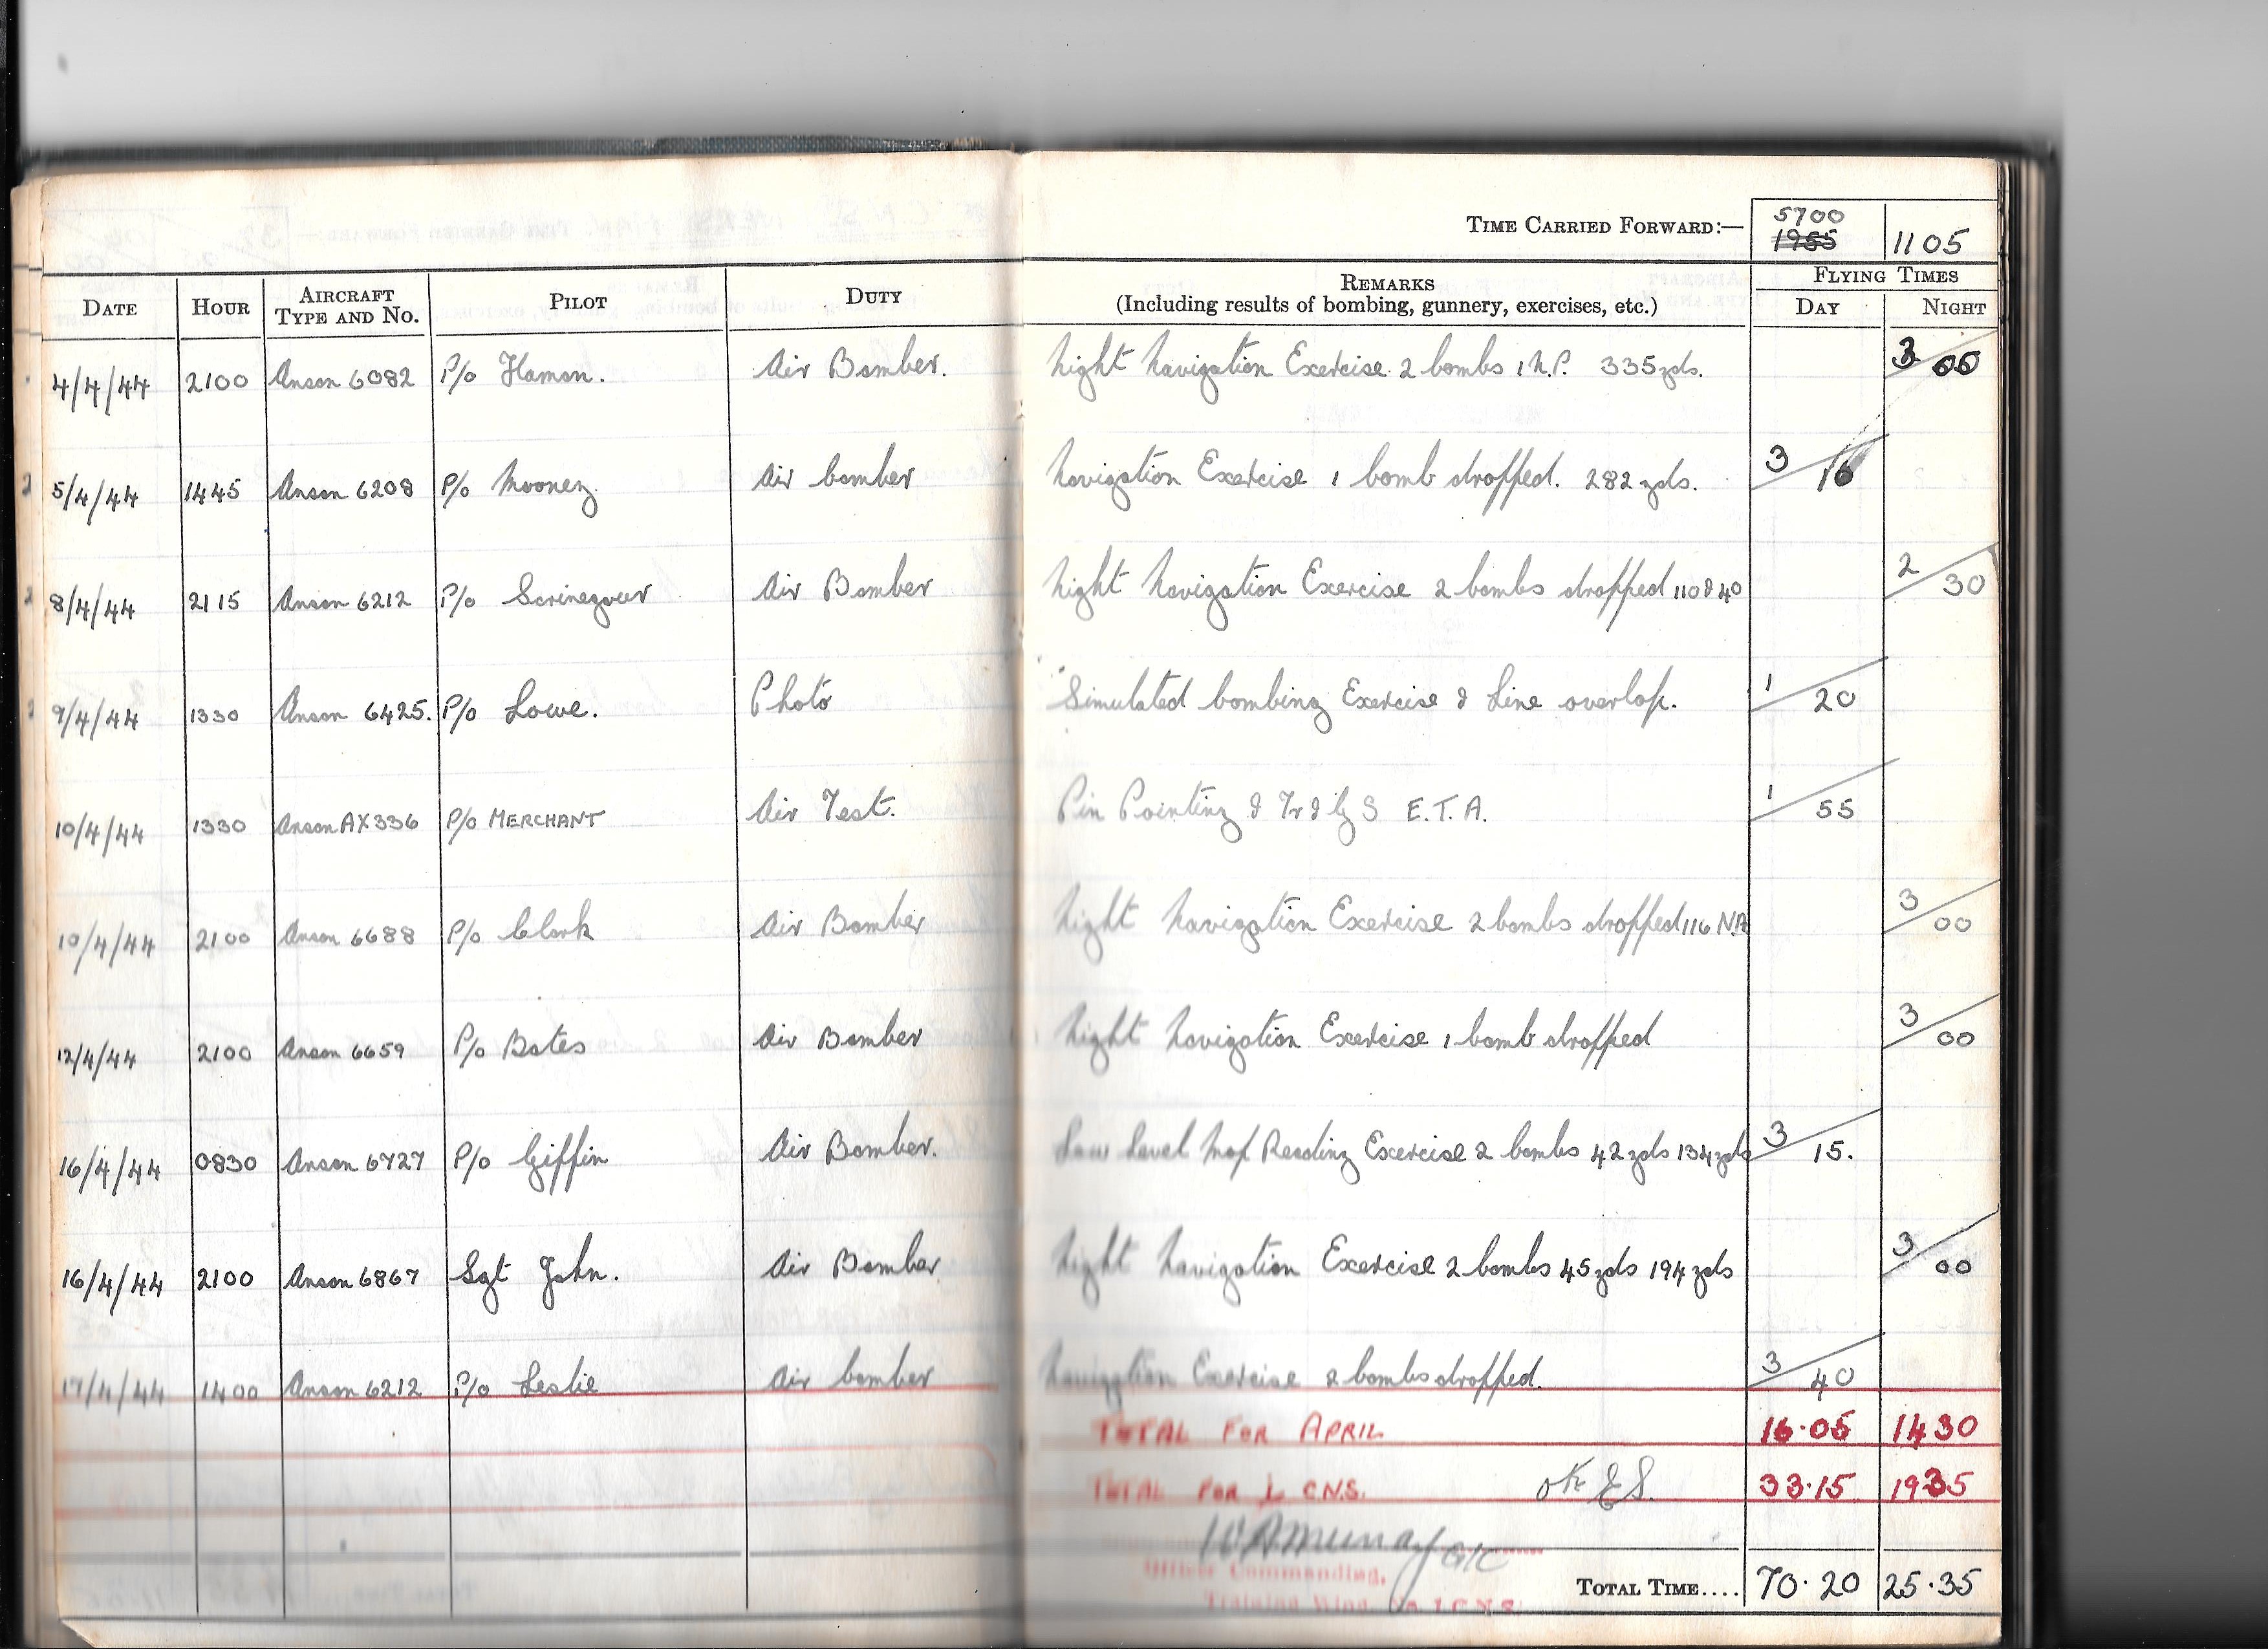 TIME CARRIED FORWARD:— 5700 1955 1105
DATE HOUR AIRCRAFT TYPE AND NO. PILOT DUTY REMARKS (Including results of bombing, gunnery, exercises, etc.) FLYING TIMES DAY NIGHT
4/4/44 2100 Anson 6082 P/o Hamon. Air Bomber. Night Navigation Exercise 2 bombs 1 N.P. 335 yds. 3/00
5/4/44 1445 Anson 6208 P/o Mooney Air bomber Navigation Exercise 1 bomb dropped. 282 yds. 3/10
8/4/44 2115 Anson 6212 P/o Scrinegour Air Bomber Night Navigation Exercise 2 bombs dropped 110 & 40 2/30
9/4/44 1330 Anson 6425. P/o Lowe. Photo Simulated bombing Exercise & Line overlap. 1/20
10/4/44 1330 Anson AX336 P/o MERCHANT Air Test. Pin Pointing & Tr & G S E.T.A. 1/55
10/4/44 2100 Anson 6688 P/o Clark Air Bomber Night Navigation Exercise 2 bombs dropped 116 3/00
12/4/44 2100 Anson 6659 P/o Bates Air Bomber Night Navigation Exercise 1 bomb dropped 3/00
16/4/44 0830 Anson 6727 P/o Giffin Air Bomber. Low Level Map Reading Exercise 2 bombs 42 yds 134 yds 3/15.
16/4/44 2100 Anson 6867 Sgt John. Air Bomber Night Navigation Exercise 2 bombs 45 yds 194 yds 3/00
17/4/44 1400 Anson 6212 P/o Leslie Air bomber Navigation Exercise 2 bombs dropped. 3/40
TOTAL FOR APRIL 16·05 1430
TOTAL FOR 1 C.N.S. OK ES. 33·15 1935
W A Murray G/C
Officer Commanding,
Training Wing, No. 1 C.N.S.
TOTAL TIME.... 70·20 25·35